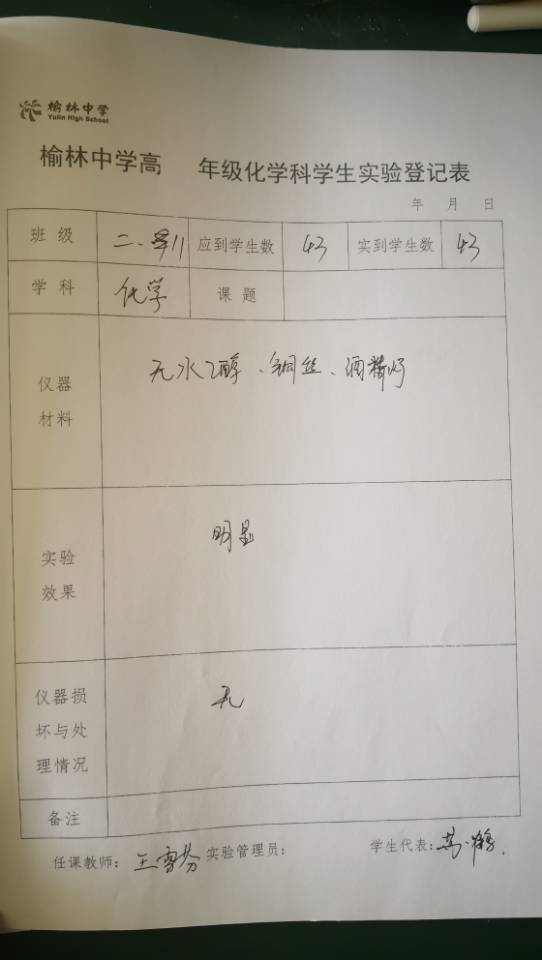 榆林中学
Yulin High School
榆林中学高 年级化学科学生实验登记表
年 月 日
班 级 二. 11 应到学生数 43 实到学生数 43
学 科 化学 课 题
仪器
材料
无水乙醇、铜丝、酒精灯
实验
效果
明显
仪器损
坏与处
理情况
无
备注
任课教师: 王雪芬 实验管理员: 学生代表: